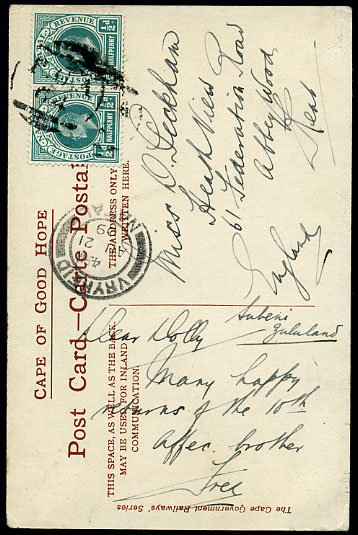 CAPE OF GOOD HOPE
Post Card.—Carte Postale
THIS SPACE, AS WELL AS THE BACK,
MAY BE USED FOR INLAND
COMMUNICATION.
THE ADDRESS ONLY
WRITTEN HERE.
REVENUE
POSTAGE
½d
HALFPENNY
½d
REVENUE
POSTAGE
½d
HALFPENNY
½d
VRYHEID
NATAL
21
09
Miss D. Peckham
Heath View
61 Federation Road
Abbey Wood
Kent
England
Hubeni
Zululand
Dear Dolly
Many happy
returns of the 10th
Affec. brother
Fred
The Cape Government Railways' Series